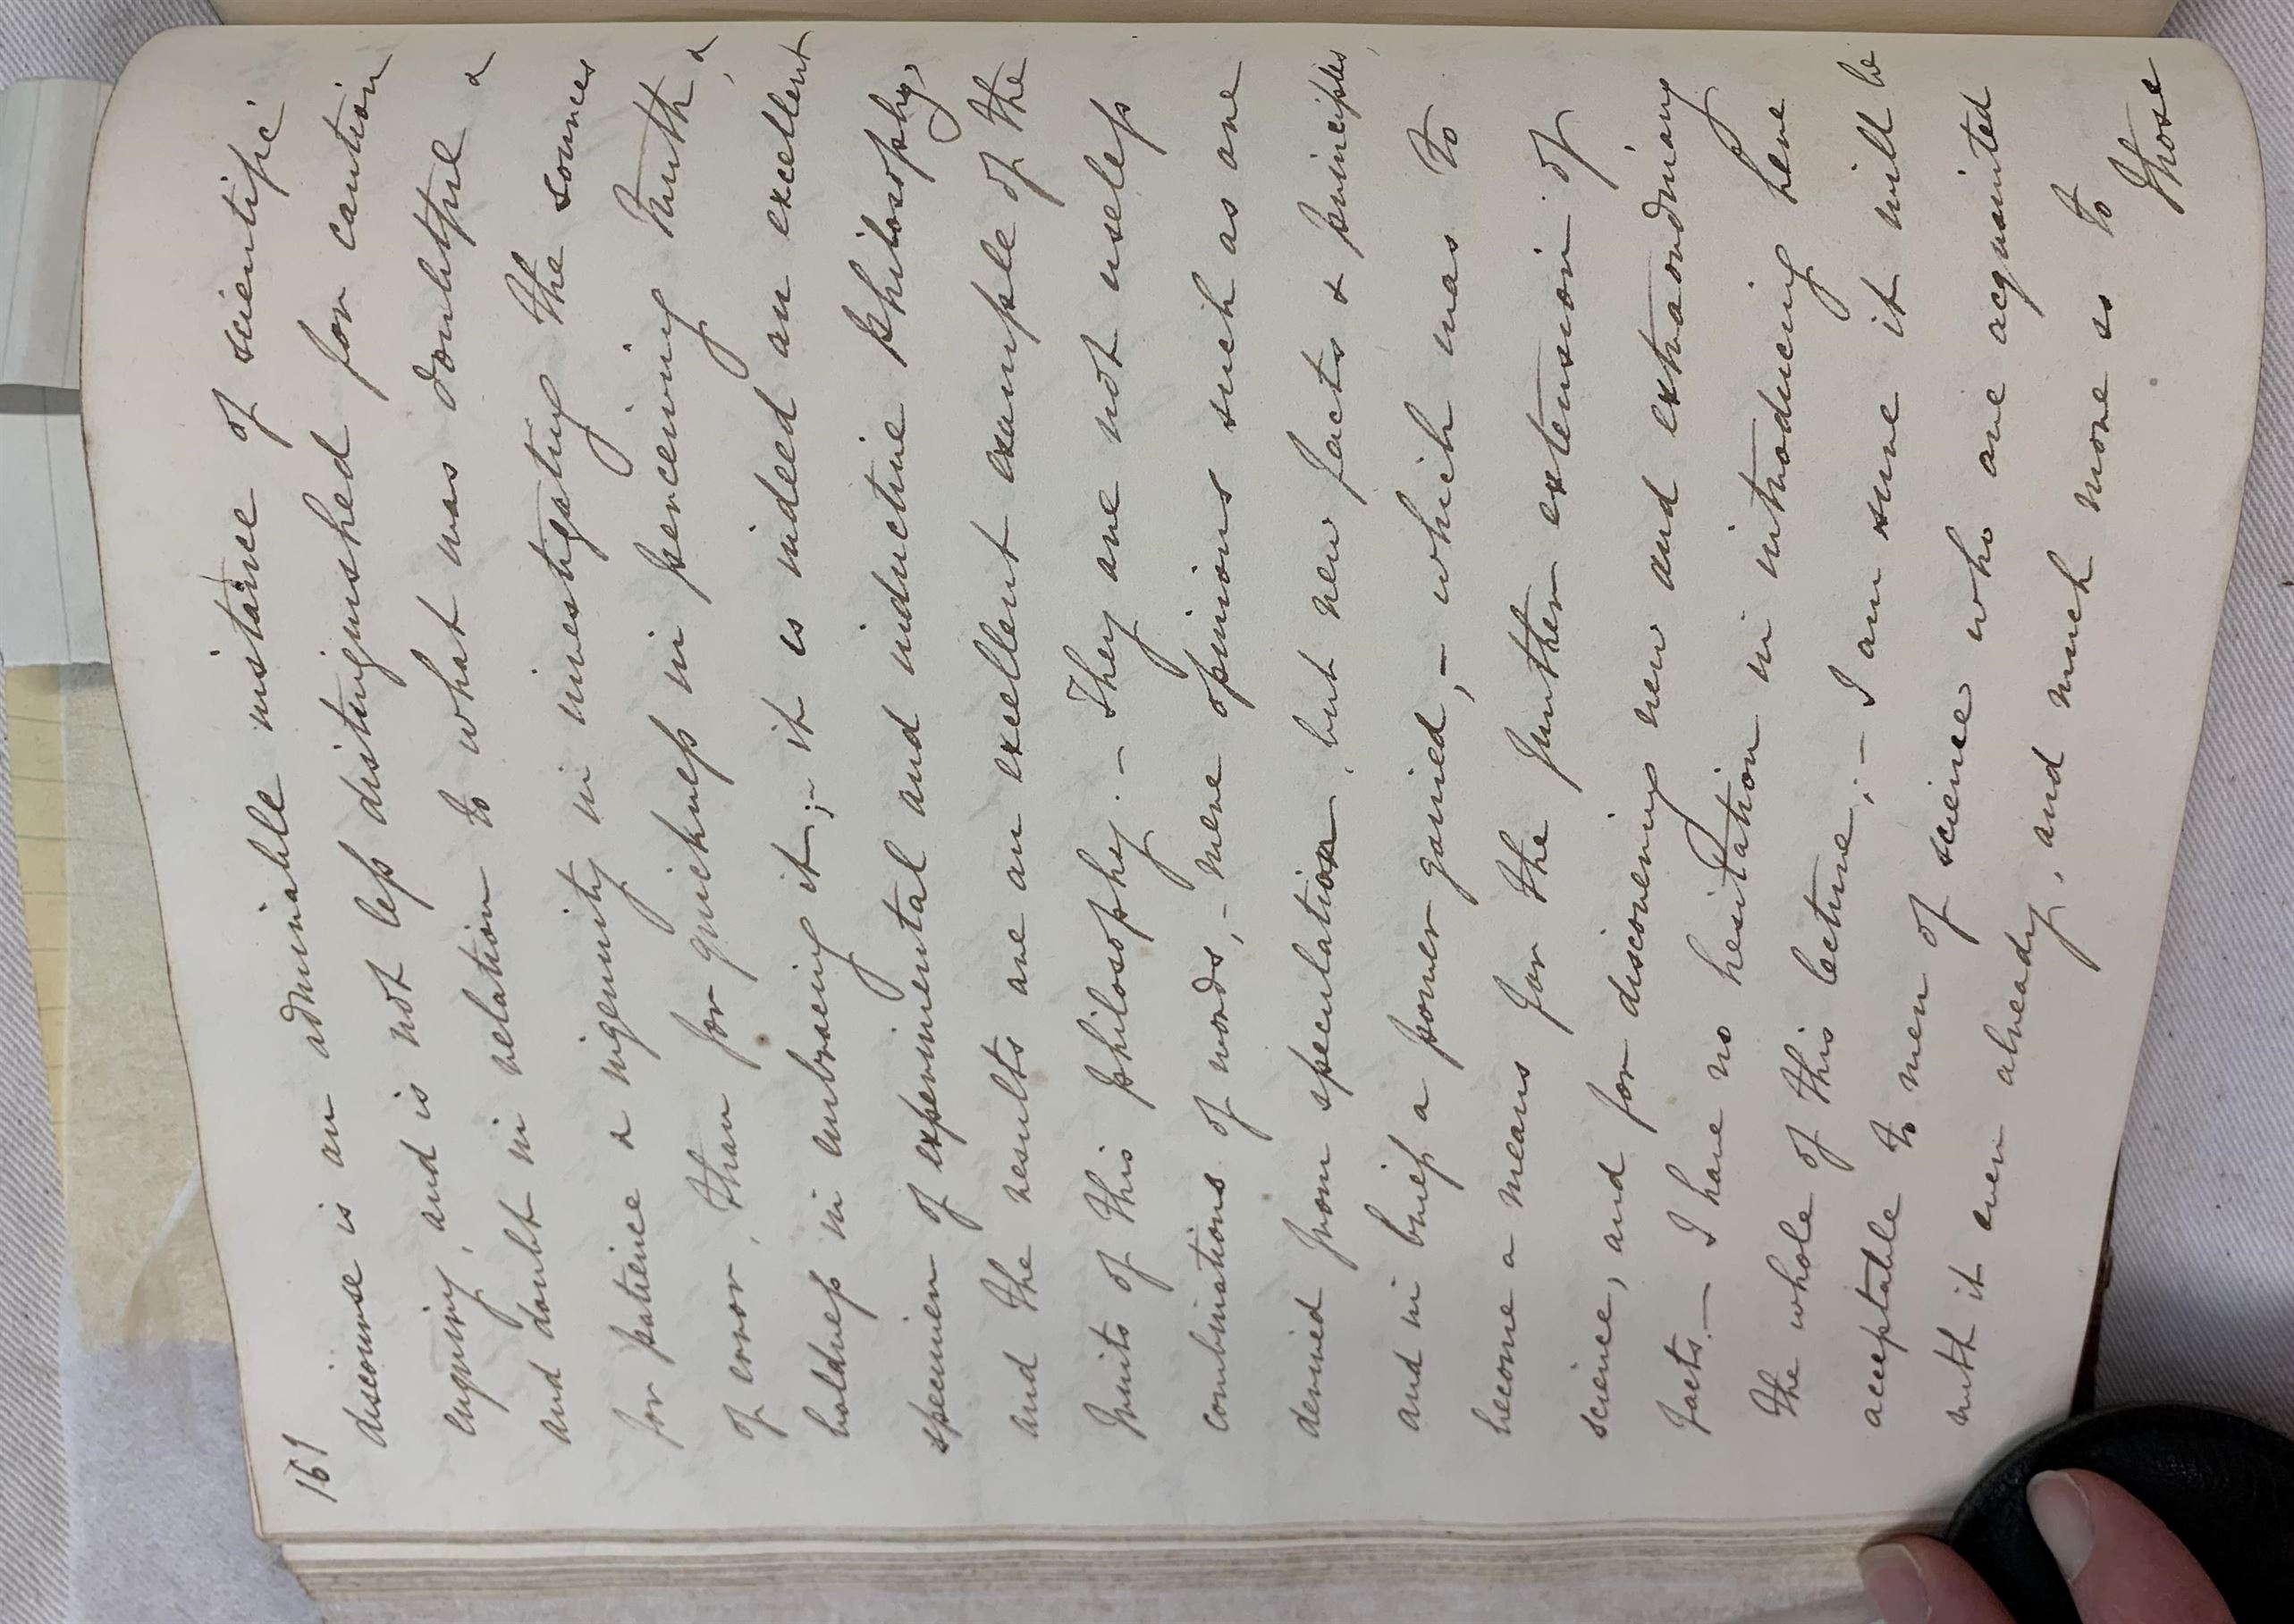 161
discourse is an admirable instance of scientific
enquiry, and is not less distinguished for caution
and doubt in relation to what was doubtful &
for patience & ingenuity in investigating the sources
of error, than for quickness in perceiving truth, &
boldness in embracing it;- it is indeed an excellent
specimen of experimental and inductive philosophy,
and the results are an excellent example of the
fruits of this philosophy.- They are not useless
combinations of words,- mere opinions such as are
derived from speculation, but new facts & principles,
and in brief a power gained,- which was to
become a means for the further extension of
science, and for discovering new and extraordinary
facts.- I have no hesitation in introducing here
the whole of this lecture;- I am sure it will be
acceptable to men of science who are acquainted
with it even already, and much more so to
those